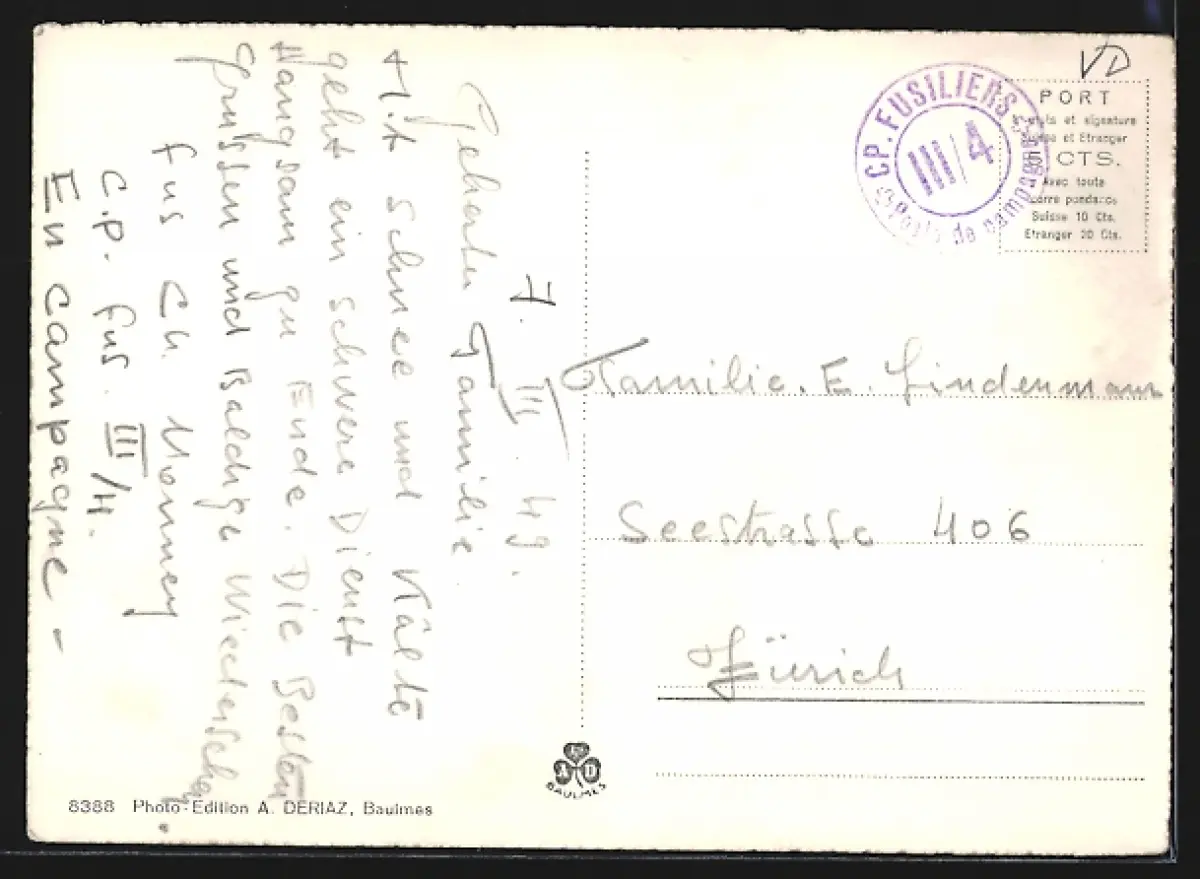 7. III. 49.
Geherte Familie.
Mit schnee und Kälte
geht ein schwere Dienst
Langsam zu Ende. Die Besten
Grüssen und Baldige Wiedersehen
Fus Ch.
C.P. Fus. III/4.
En campagne -
CP. FUSILIERS
III/4
Poste de campagne
VD
PORT
et signature
Suisse et Etranger
5 CTS.
Avec toute
correspondance
Suisse 10 Cts.
Etranger 20 Cts.
Familie. E. Lindenmann
Seestrasse 406
Zürich
BAULMES
8388 Photo-Edition A. DERIAZ, Baulmes